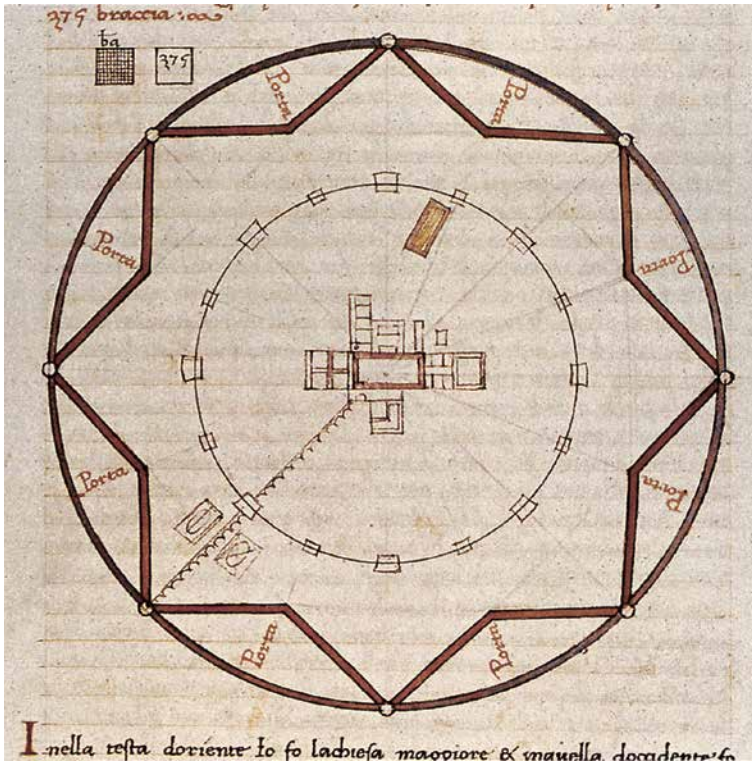 275 braccia
ba
275
Porta
Porta
Porta
Porta
Porta
Porta
Porta
Porta
Inella testa doriente Io fo lachiesa maggiore & inquella doccidente fo